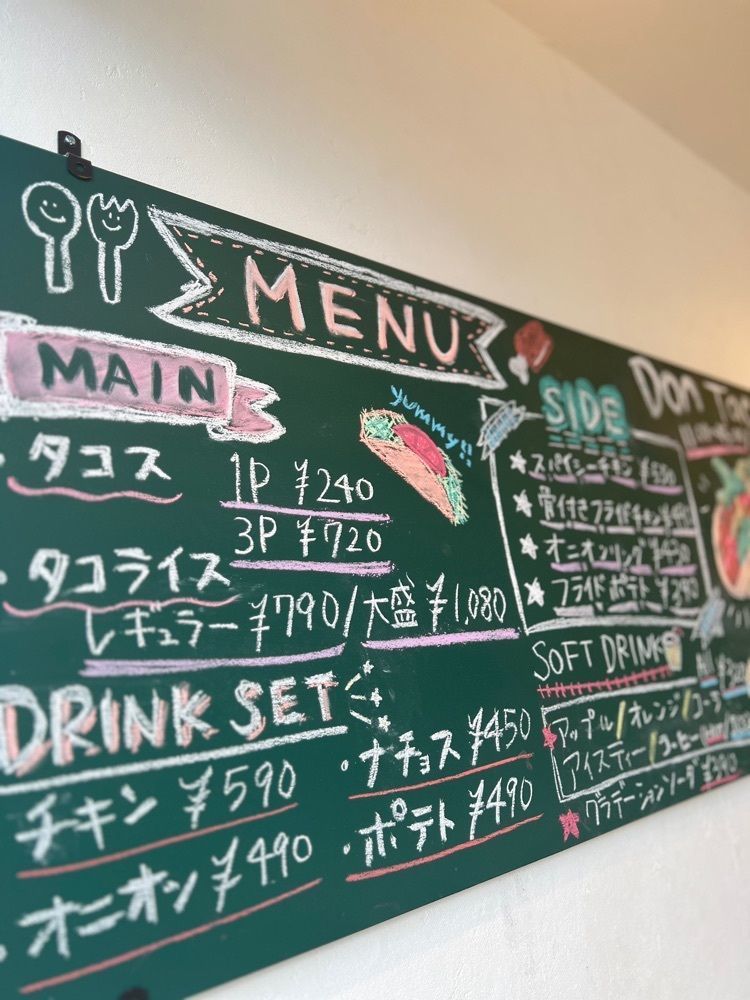 MENU
MAIN
・タコス
1P ¥240
3P ¥720
・タコライス
レギュラー ¥790/大盛 ¥1,080
yummy!!
DRINK SET
チキン ¥590
・オニオン ¥490
・ナチョス ¥450
・ポテト ¥490
SIDE
★スパイシーチキン
★骨付きフライドチキン
★オニオンリング
★フライドポテト
SOFT DRINK
アップル/オレンジ/コーラ
アイスティー/コーヒー
★グラデーションソーダ
Don